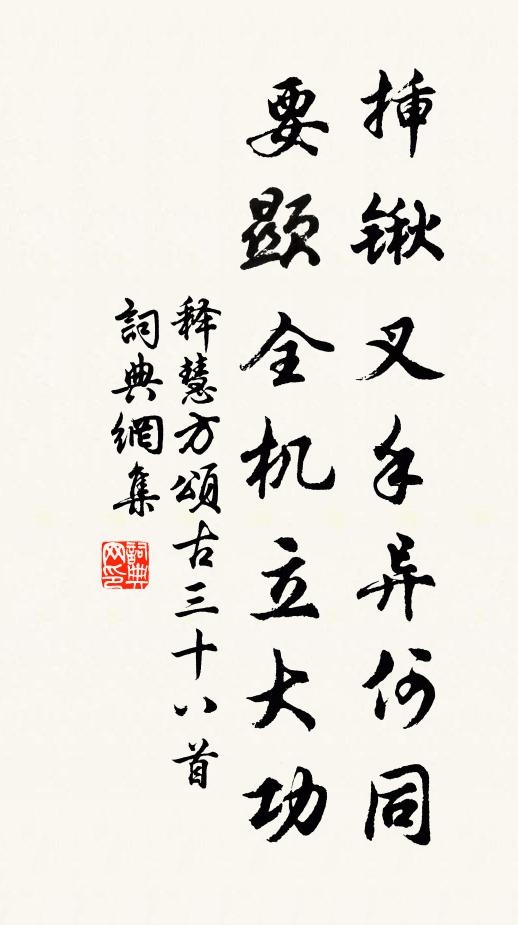 挿锹叉手异何同
要顕全机立大功
释慧方頌古三十八首
詞典網集
詞典网印